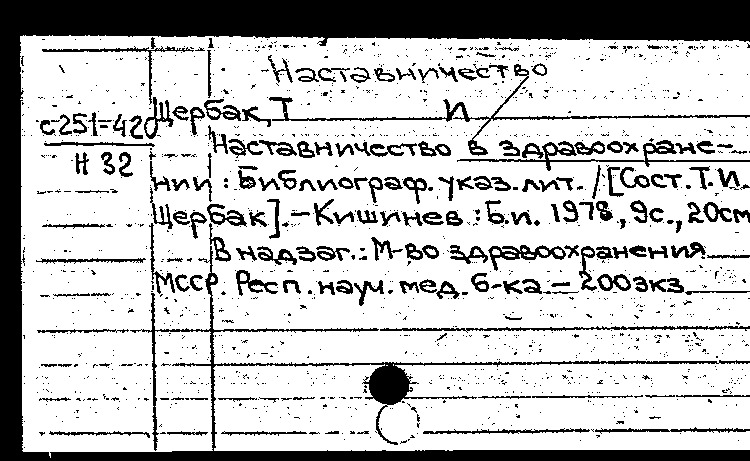 Наставничество
Щербак, Т И
с251-420
Н 32
Наставничество в здравоохране-
нии : Библиограф. указ. лит. / [Сост. Т. И.
Щербак]. - Кишинев : Б.и. 1978, 9с., 20см
В надзаг.: М-во здравоохранения
МССР. Респ. науч. мед. б-ка - 200экз.